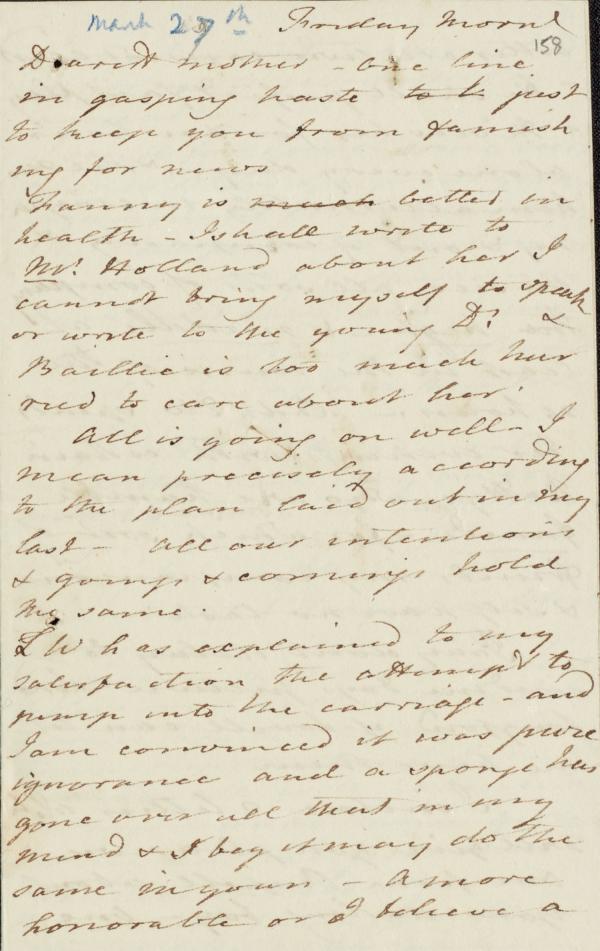 March 27th Friday Morng
158
Dearest mother - One line
in gasping haste to k just
to keep you from famish
ing for news
Fanny is much better in
health - I shall write to
Mr. Holland about her I
cannot bring myself to speak
or write to the young Dr. &
Baillie is too much hur
ried to care about her.
All is going on well - I
mean precisely according
to the plan laid out in my
last - all our intentions
& goings & comings hold
the same.
LW has explained to my
satisfaction the attempt to
jump into the carriage - and
I am convinced it was pure
ignorance and a sponge has
gone over all that in my
mind & I beg it may do the
same in yours - A more
honorable or I believe a